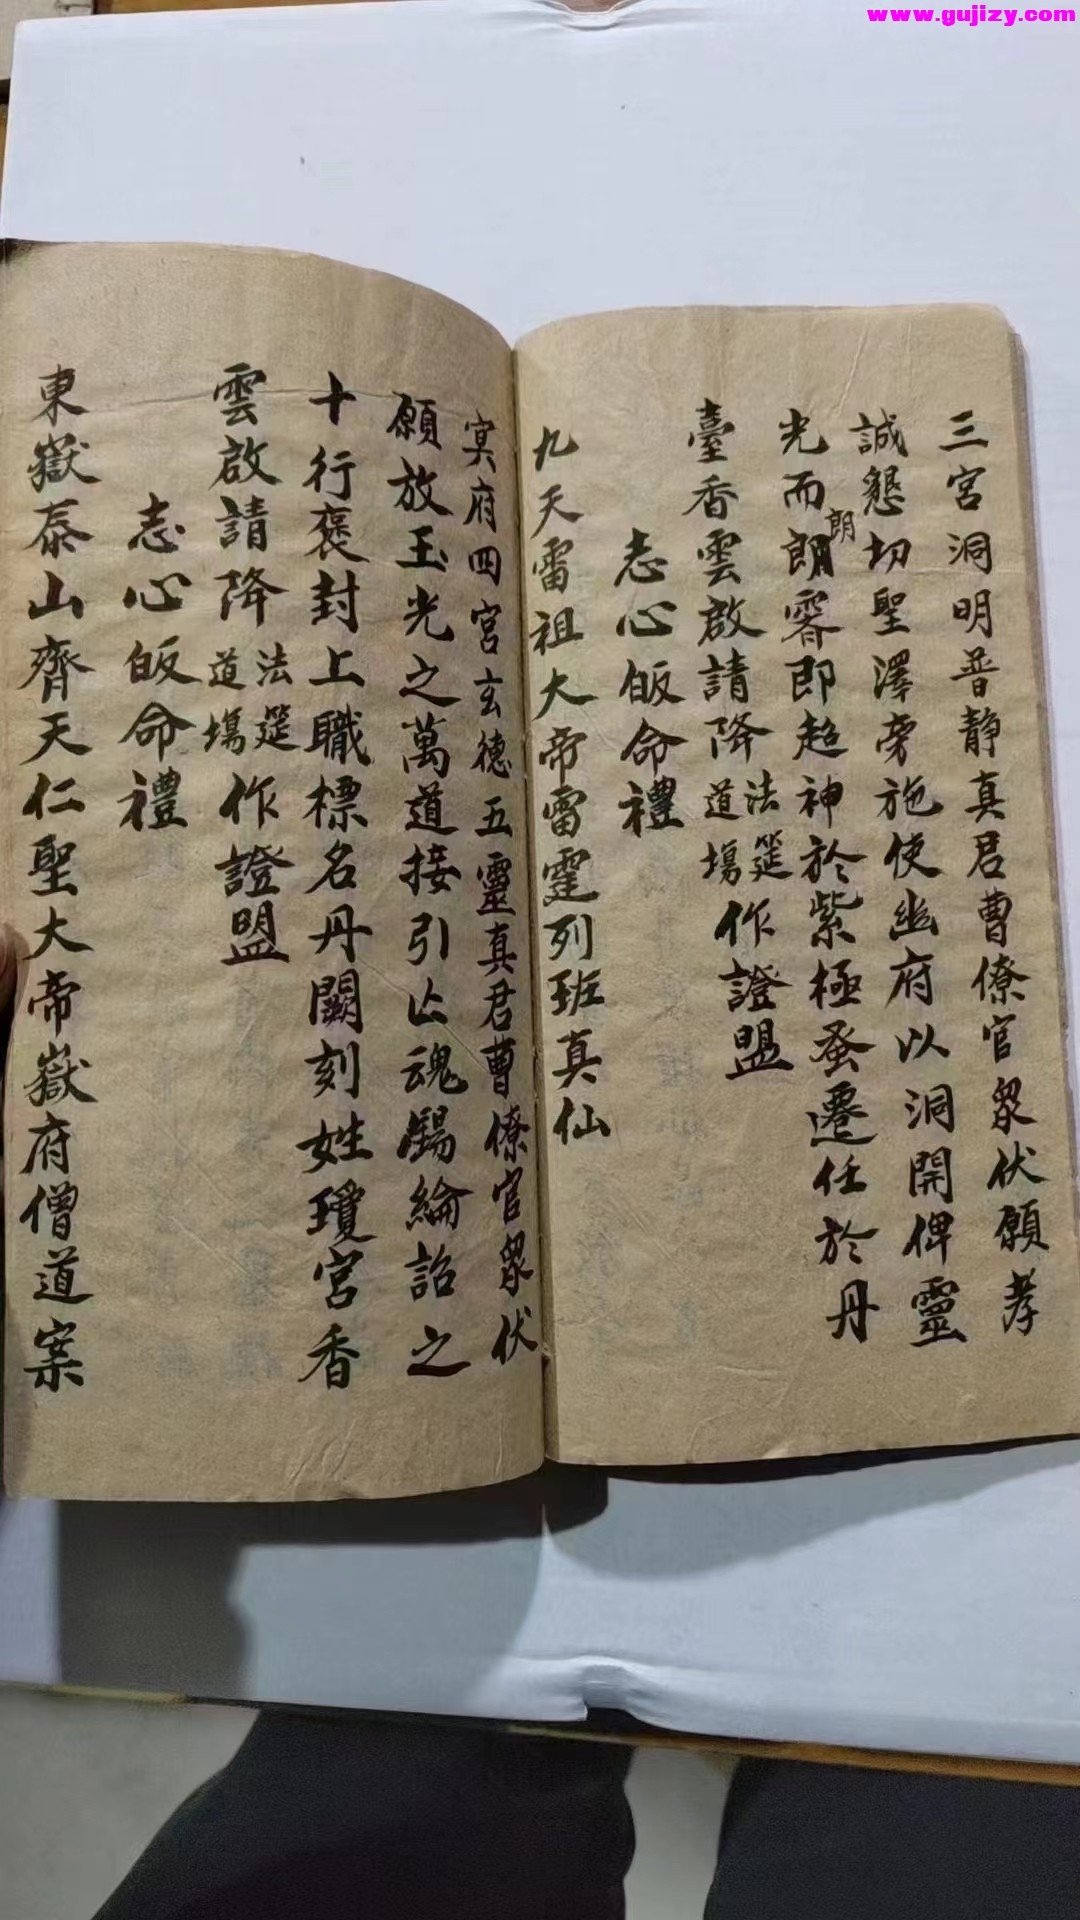 www.gujizy.com
三宮洞明普靜真君曹僚官眾伏願孝
誠懇切聖澤旁施使幽府以洞開俾靈
光而朗朗霽即超神於紫極蚤遷任於丹
臺香雲啟請降法筵道塲作證盟
志心皈命禮
九天雷祖大帝雷霆列班真仙
冥府四宮玄德五靈真君曹僚官眾伏
願放玉光之萬道接引亡魂錫綸詔之
十行褒封上職標名丹闕刻姓瓊宮香
雲啟請降法筵道塲作證盟
志心皈命禮
東嶽泰山齊天仁聖大帝嶽府僧道案